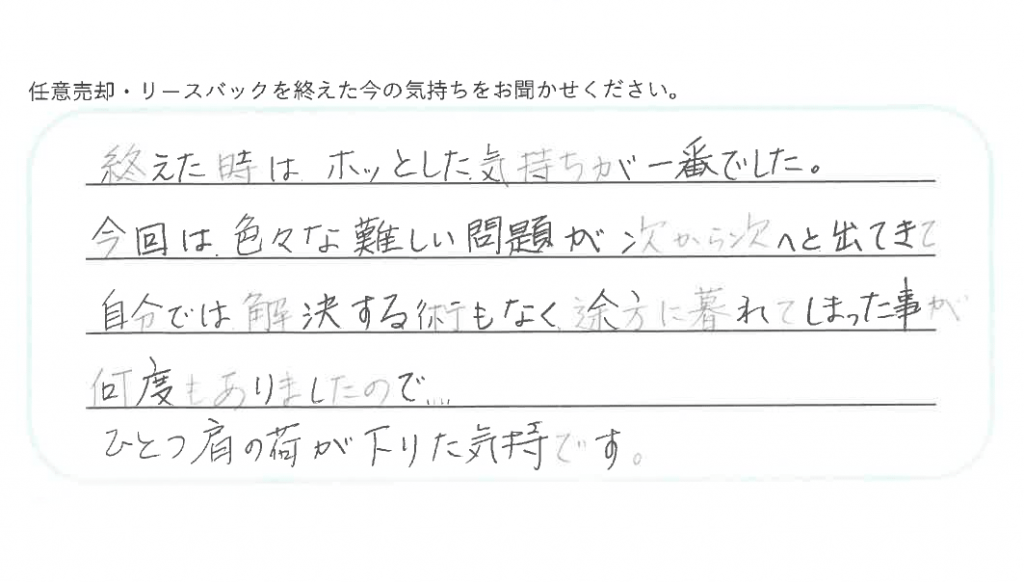 任意売却・リースバックを終えた今の気持ちをお聞かせください。
終えた時は ホッとした気持ちが一番でした。
今回は色々な難しい問題が次から次へと出てきて
自分では解決する術もなく途方に暮れてしまった事が
何度もありましたので....
ひとつ肩の荷が下りた気持です。